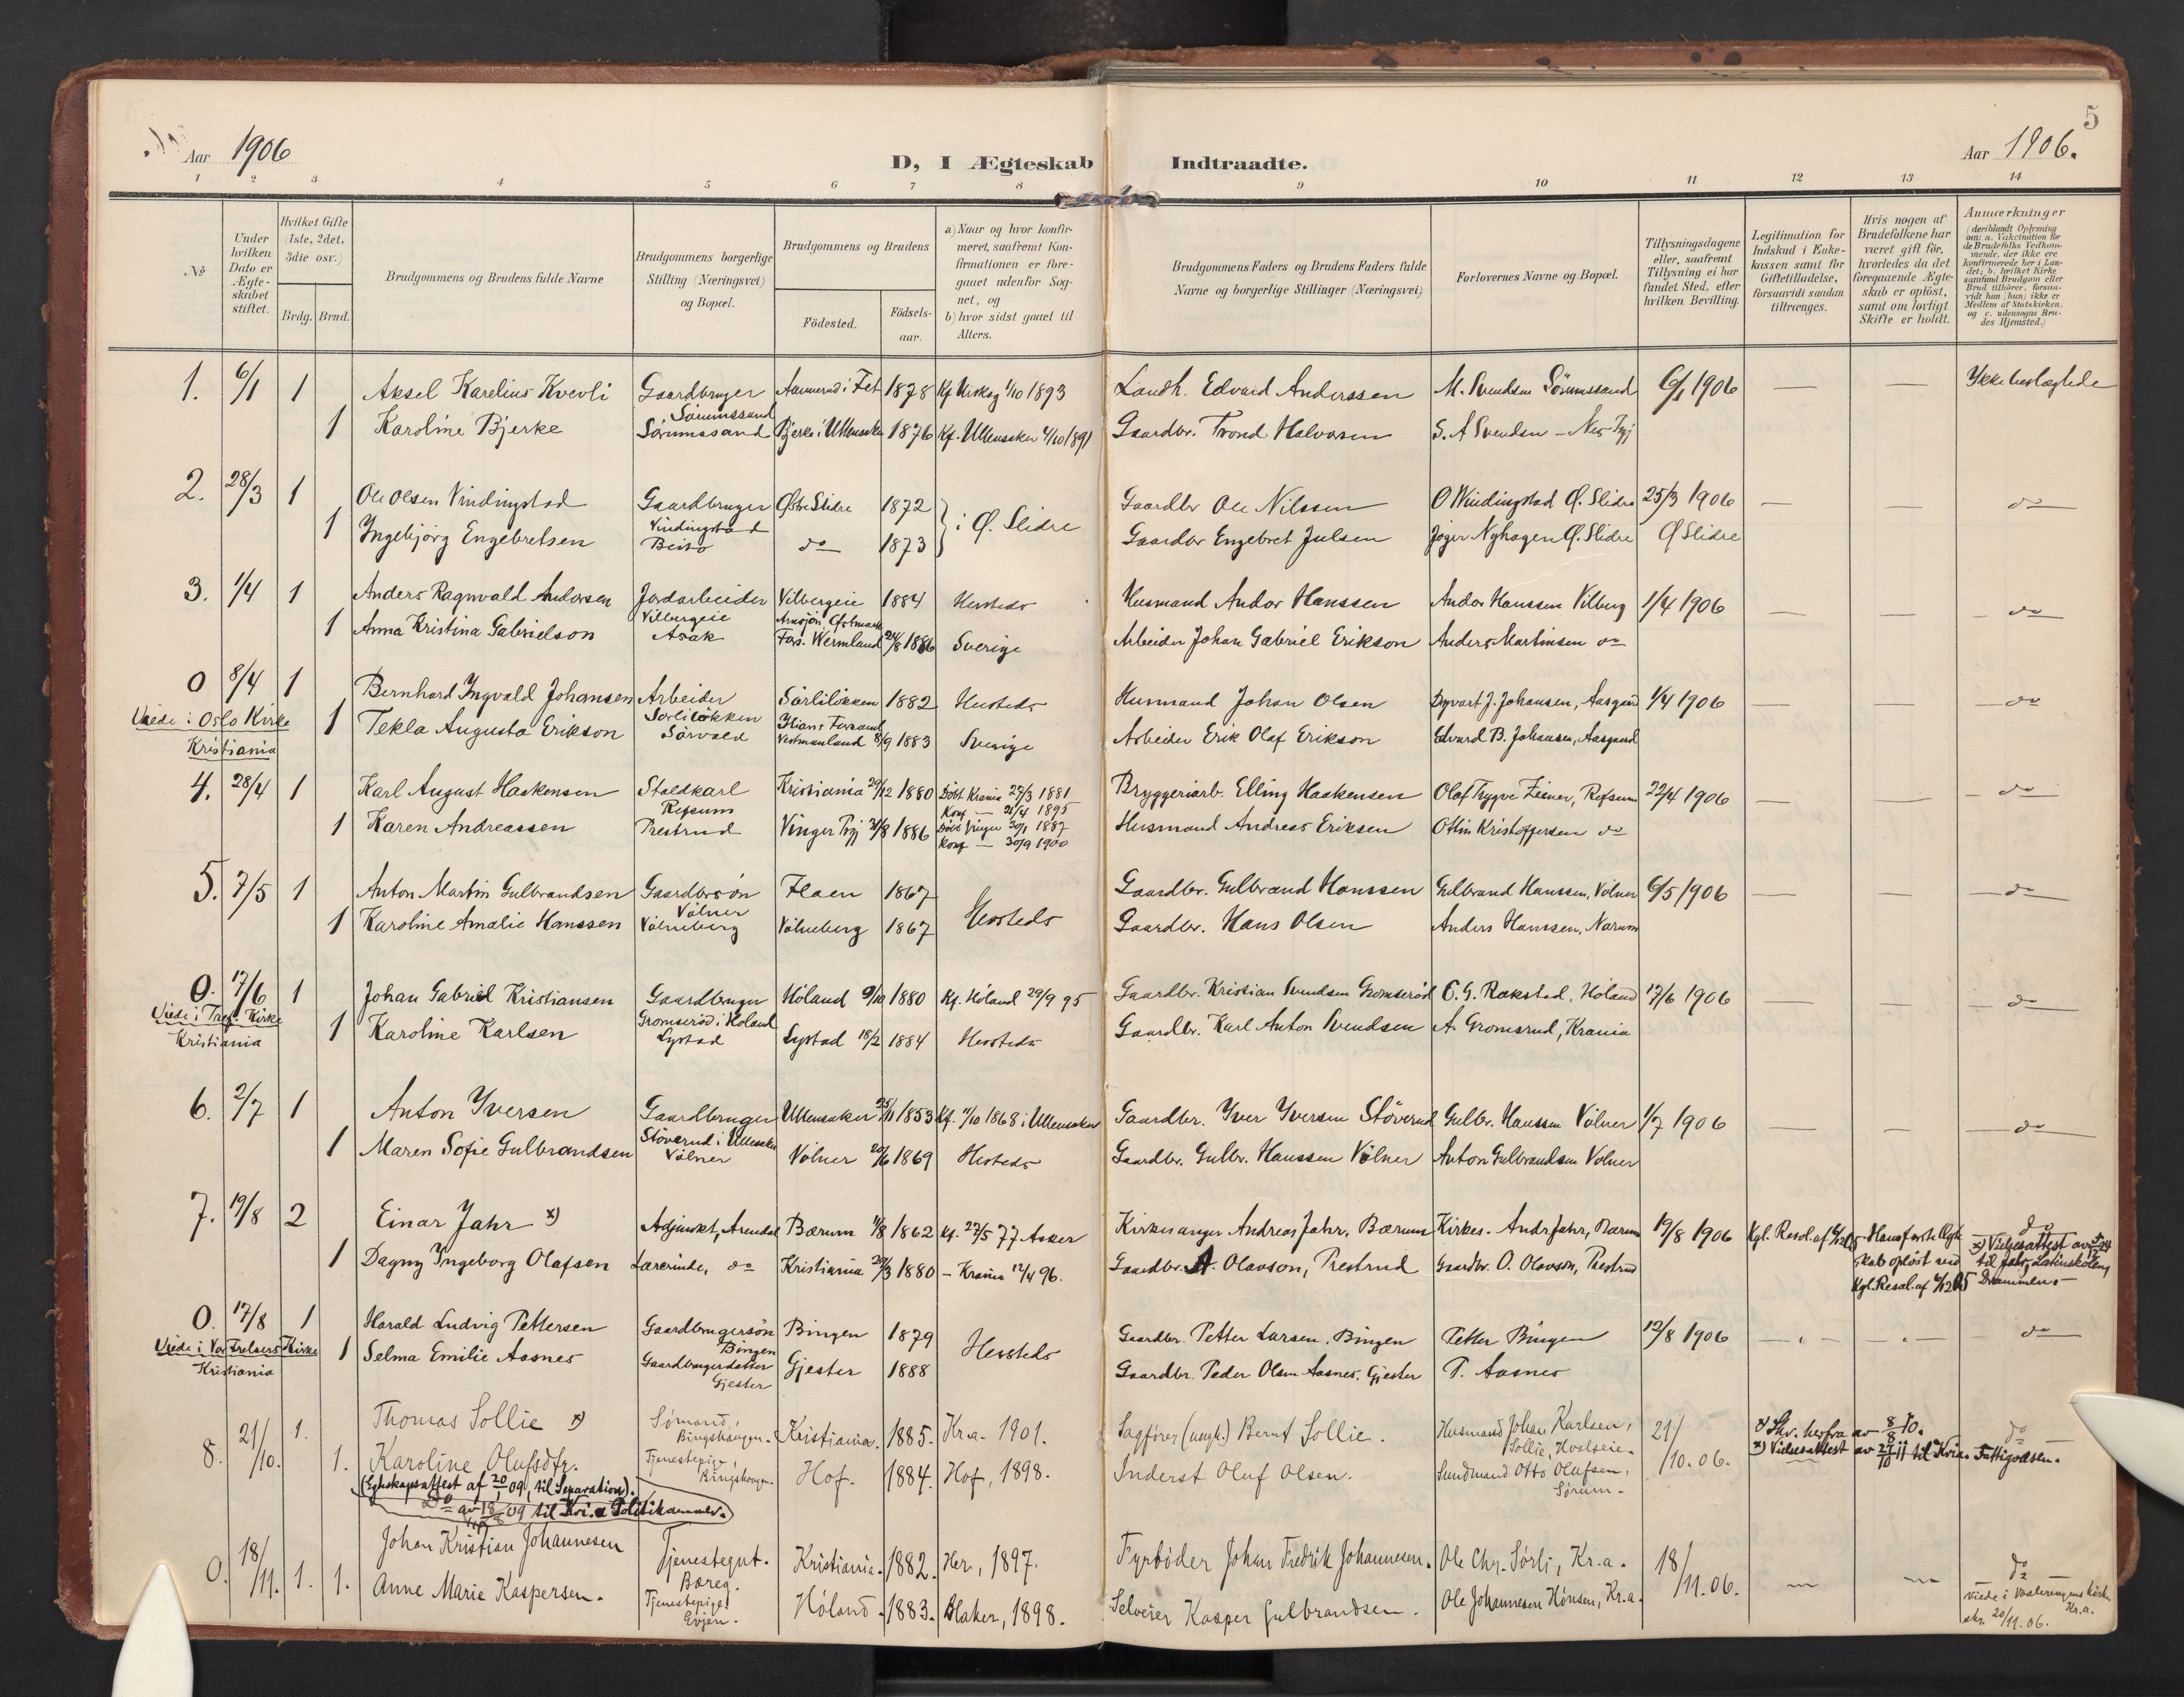 5
Aar 1906
D, I Ægteskab Indtraadte.
Aar 1906.
1 2 3 4 5 6 7 8 9 10 11 12 13 14
№
Under hvilken Dato er Ægteskabet stiftet.
Hvilket Gifte (1ste, 2det, 3die osv.)
Brdg. Brud.
Brudgommens og Brudens fulde Navne
Brudgommens borgerlige Stilling (Næringsvei) og Bopæl.
Brudgommens og Brudens
Fødested.
Fødselsaar.
a) Naar og hvor konfirmeret, saafremt Konfirmationen er foregaaet udenfor Sognet, og
b) hvor sidst gaaet til Alters.
Brudgommens Faders og Brudens Faders fulde Navne og borgerlige Stillinger (Næringsvei)
Forlovernes Navne og Bopæl.
Tillysningsdagene eller, saafremt Tillysning ei har fundet Sted, efter hvilken Bevilling.
Legitimation for Indskud i Enkekassen samt for Giftetilladelse, forsaavidt saadan tiltrænges.
Hvis nogen af Brudefolkene har været gift før, hvorledes da det foregaaende Ægteskab er opløst, samt om lovligt Skifte er holdt.
Anmærkninger (deriblandt Oplysning om: a. Vakcination for de Brudefolks Vedkommende, der ikke ere konfirmerede her i Landet; b. hvilket Kirkesamfund Brudgom eller Brud tilhører, forsaavidt han (hun) ikke er Medlem af Statskirken, og c. udensogns Brudes Hjemsted.)
1. 6/1 1 Aksel Karelius Kvevli Gaardbruger Sørumssand Aamerud i Fet 1878 Kf Urskog 1/10 1893 Landh. Edvard Anderssen M. Svendsen Sörumssand 6/1 1906 — — Ikke beslægtede
1 Karoline Bjerke Sørumssand Bjerke i Ullensaker 1876 Kf. Ullensaker 4/10 1891 Gaardbr. Trond Halvorsen S. A Svendsen - Nes
2. 28/3 1 Ole Olsen Vindingstad Gaardbruger Vindingstad Østre Slidre 1872 i Ø. Slidre Gaardbr Ole Nilssen O Windingstad Ø. Slidre 25/3 1906 — — do
1 Ingebjørg Engebretsen Beito do 1873 Gaardbr Engebret Julsen Nyhagen Ø. Slidre Ø Slidre
3. 1/4 1 Anders Ragnvald Andorsen Jordarbeider Vilbergeie Vilbergeie 1884 Hersteds Husmand Andor Hanssen Andor Hanssen Vilberg 1/4 1906 — — do
1 Anna Kristina Gabrielson Asak Wermland 24/8 1886 Sverige Arbeider Johan Gabriel Erikson Anders Martinsen do
0 8/4 1 Bernhard Ingvald Johansen Arbeider Sörlilökken Sörlilökken 1882 Hersteds Husmand Johan Olsen J. Johansen, Aasgaard 1/4 1906 — — do
Viede i Oslo Kirke Kristiania
1 Tekla Augusta Erikson Sörvald Vestmanland 8/9 1883 Sverige Arbeider Erik Olaf Erikson Edvard B. Johansen, Aasgaard
4. 28/4 1 Karl August Haakensen Staldkarl Refsum Kristiania 29/12 1880 Døbt Krania 27/3 1881 Konf — 21/4 1895 Bryggeriarb. Elling Haakensen Olaf Trygve Zeiner, Refsum 22/4 1906 — — do
1 Karen Andreassen Prestrud Vinger Prgj 31/8 1886 Døbt Vinger 30/1 1887 Konf — 30/9 1900 Husmand Andreas Eriksen Otto Kristoffersen do
5. 7/5 1 Anton Martin Gulbrandsen Gaardbrsøn Völner Flaen 1867 Hersteds Gaardbr. Gulbrand Hanssen Gulbrand Hanssen, Völner 6/5 1906 — — do
1 Karoline Amalie Hanssen Völneberg Völneberg 1867 Gaardbr. Hans Olsen Anders Hanssen, Narum
0. 17/6 1 Johan Gabriel Kristiansen Gaardbruger Gromserød i Høland Høland 9/10 1880 Kf. Høland 29/9 95 Gaardbr. Kristian Svendsen Gromserød C. G. Rakstad, Høland 17/6 1906 — — do
Viede i Tref. Kirke Kristiania
1 Karoline Karlsen Lystad Lystad 18/2 1884 Hersteds Gaardbr. Karl Anton Svendsen A. Gromsrud, Krania
6. 2/7 1 Anton Iversen Gaardbruger Støverud i Ullensaker Ullensaker 25/11 1853 Kf. 4/10 1868 i Ullensaker Gaardbr. Iver Iversen Støverud Gulbr. Hanssen Völner 1/7 1906 — — do
1 Maren Sofie Gulbrandsen Völner Völner 20/6 1869 Hersteds Gaardbr. Gulbr. Hanssen Völner Anton Gulbrandsen Völner
7. 19/8 2 Einar Jahr x) Adjunkt, Arendal Bærum 11/8 1862 Kf. 27/5 77 Asker Kirkesanger Andreas Jahr, Bærum Kirkes. Andr Jahr, Bærum 19/8 1906 Kgl. Resol. af Hans første Ægteskab opløst ved Kgl. Resol. af 4/12 05 do x) Vielsesattest av til Jahr, Latinskolen, Drammen.
1 Dagny Ingeborg Olafsen Lærerinde, do Kristiania 29/3 1880 — Krania 12/4 96. Gaardbr. A. Olavson, Prestrud Gaardbr. O. Olavson, Prestrud
0. 17/8 1 Harald Ludvig Pettersen Gaardbrugersøn Bingen Bingen 1879 Hersteds Gaardbr. Petter Larsen, Bingen Petter Bingen 12/8 1906 — — do
Viede i Vor Frelsers Kirke Kristiania
1 Selma Emilie Aasnes Gaardbrugerdatter Gjester Gjester 1888 Gaardbr. Peder Olsen Aasnes, Gjester P. Aasnes
8. 21/10. 1. Thomas Sollie x) Sømand, Bingshaugen. Kristiania. 1885. Kr.a. 1901. Sagfører (ungk.) Bernt Sollie. Husmand Johan Karlsen, Sollie, Hvalseie. 21/10.06. x) Skr. herfra av 8/8 10. do
x) Vielsesattest av 27/10 11 til Kr.ia Fattigvæsen.
1. Karoline Olufsdtr. Tjenestepige, Bingshaugen. Hof. 1884. Hof, 1898. Inderst Oluf Olsen. Sundmand Otto Olufsen, Sørum.
(Egteskapsattest af 20/1 09, til Separation).
Do av 18/8 09 til Kri.a Politikammer.
0. 18/11. 1. Johan Kristian Johannesen Tjenestegut. Bareg. Kristiania. 1882. Her, 1897. Fyrbøder Johan Fredrik Johannesen. Ole Chr. Sørli, Kr.a. 18/11.06. — — do
1. Anne Marie Kaspersen. Tjenestepige Evjen. Høland. 1883. Blaker, 1898. Selveier Kasper Gulbrandsen. Ole Johannesen Hønsen, Kr.a. Viede i Vaalerengens kirke Kr.a. skr. 20/11.06.